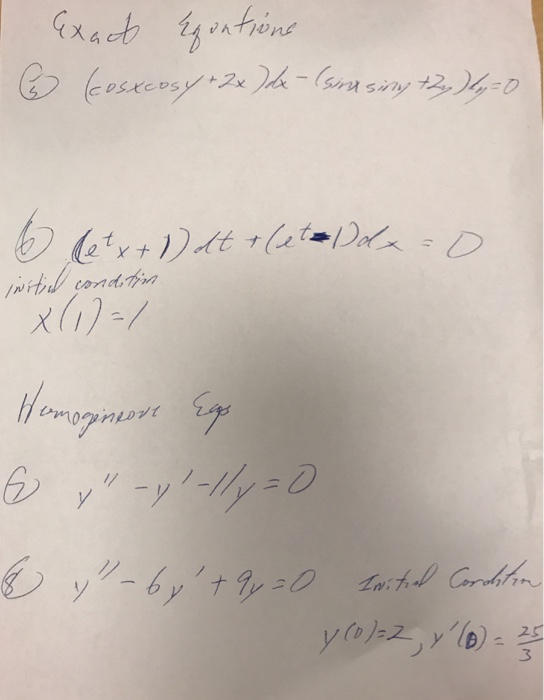 Exact Equations
⑤ (cosxcosy+2x)dx-(sinxsiny+2y)dy=0
⑥ (e^t x+1)dt+(e^t-1)dx=0
initial condition
x(1)=1
Homogineous Eqs
⑦ y''-y'-11y=0
⑧ y''-6y'+9y=0 Initial Condition
y(0)=2, y'(0)=25/3